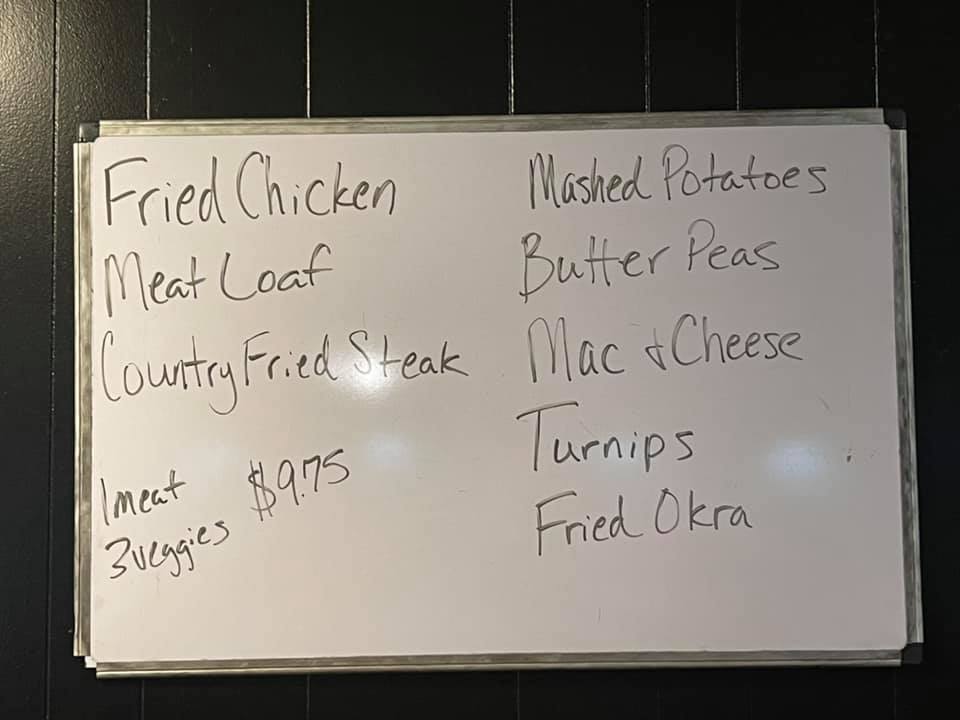 Fried Chicken
Meat Loaf
Country Fried Steak
1 meat
3 veggies
$9.75
Mashed Potatoes
Butter Peas
Mac & Cheese
Turnips
Fried Okra